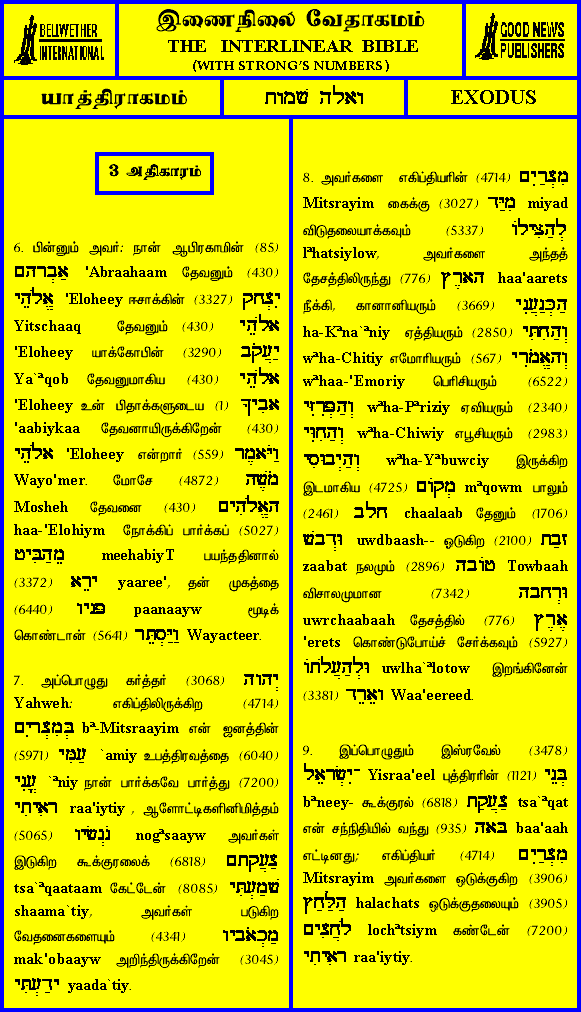 BELLWETHER
INTERNATIONAL
இணைநிலை வேதாகமம்
THE INTERLINEAR BIBLE
(WITH STRONG'S NUMBERS)
GOOD NEWS
PUBLISHERS
யாத்திராகமம்
ואלה שמות
EXODUS
3 அதிகாரம்
6. பின்னும் அவர்: நான் ஆபிரகாமின் (85)
אַבְרהם 'Abraahaam தேவனும் (430)
אֱלֹהֵי 'Eloheey ஈசாக்கின் (3327) יִצְחק
Yitschaaq தேவனும் (430) אלֹהֵי
'Eloheey யாக்கோபின் (3290) יַעֲקֹב
Ya`aqob தேவனுமாகிய (430) אלֹהֵי
'Eloheey உன் பிதாக்களுடைய (1) אביךָ
'aabiykaa தேவனாயிருக்கிறேன் (430)
אלֹהֵי 'Eloheey என்றார் (559) וַיֹּאמֶר
Wayo'mer. மோசே (4872) מֹשֶׁה
Mosheh தேவனை (430) האֱלֹהִים
haa-'Elohiym நோக்கிப் பார்க்கப் (5027)
מֵהַבִּיט meehabiyT பயந்ததினால்
(3372) ירֵא yaaree', தன் முகத்தை
(6440) פניו paanaayw மூடிக்
கொண்டான் (5641) וַיַּסְתֵּר Wayacteer.
7. அப்பொழுது கர்த்தர் (3068) יְהוה
Yahweh: எகிப்திலிருக்கிற (4714)
בְּמִצְרַיִם bª-Mitsraayim என் ஜனத்தின்
(5971) עַמִּי `amiy உபத்திரவத்தை (6040)
עֳנִי `ªniy நான் பார்க்கவே பார்த்து (7200)
ראִיתִי raa'iytiy , ஆளோட்டிகளினிமித்தம்
(5065) נֹגְשׂיו nogªsaayw அவர்கள்
இடுகிற கூக்குரலைக் (6818) צַעֲקתם
tsa`ªqaataam கேட்டேன் (8085) שׁמַעְתִּי
shaama`tiy, அவர்கள் படுகிற
வேதனைகளையும் (4341) מַכְאֹביו
mak'obaayw அறிந்திருக்கிறேன் (3045)
ידַעְתִּי yaada`tiy.
8. அவர்களை எகிப்தியரின் (4714) מִצְרַיִם
Mitsrayim கைக்கு (3027) מִיַּד miyad
விடுதலையாக்கவும் (5337) לְהַצִּילוֹ
lªhatsiylow, அவர்களை அந்தத்
தேசத்திலிருந்து (776) הארֶץ haa'aarets
நீக்கி, கானானியரும் (3669) הַכְּנַעֲנִי
ha-Kªna`ªniy ஏத்தியரும் (2850) וְהַחִתִּי
wªha-Chitiy எமோரியரும் (567) וְהאֱמֹרִי
wªhaa-'Emoriy பெரிசியரும் (6522)
וְהַפְּרִזִּי wªha-Pªriziy ஏவியரும் (2340)
וְהַחִוִּי wªha-Chiwiy எபூசியரும் (2983)
וְהַיְבוּסִי wªha-Yªbuwciy இருக்கிற
இடமாகிய (4725) מְקוֹם mªqowm பாலும்
(2461) חלב chaalaab தேனும் (1706)
וּדְבשׁ uwdbaash-- ஓடுகிற (2100) זבַת
zaabat நலமும் (2896) טוֹבה Towbaah
விசாலமுமான (7342) וּרְחבה
uwrchaabaah தேசத்தில் (776) אֶרֶץ
'erets கொண்டுபோய்ச் சேர்க்கவும் (5927)
וּלְהַעֲלֹתוֹ uwlha`ªlotow இறங்கினேன்
(3381) וארֵד Waa'eereed.
9. இப்பொழுதும் இஸ்ரவேல் (3478)
יִשְׂראֵל־ Yisraa'eel புத்திரரின் (1121) בְּנֵי
bªneey- கூக்குரல் (6818) צַעֲקַת tsa`ªqat
என் சந்நிதியில் வந்து (935) בּאה baa'aah
எட்டினது; எகிப்தியர் (4714) מִצְרַיִם
Mitsrayim அவர்களை ஒடுக்குகிற (3906)
הַלַּחַץ halachats ஒடுக்குதலையும் (3905)
לֹחֲצִים lochªtsiym கண்டேன் (7200)
ראִיתִי raa'iytiy.